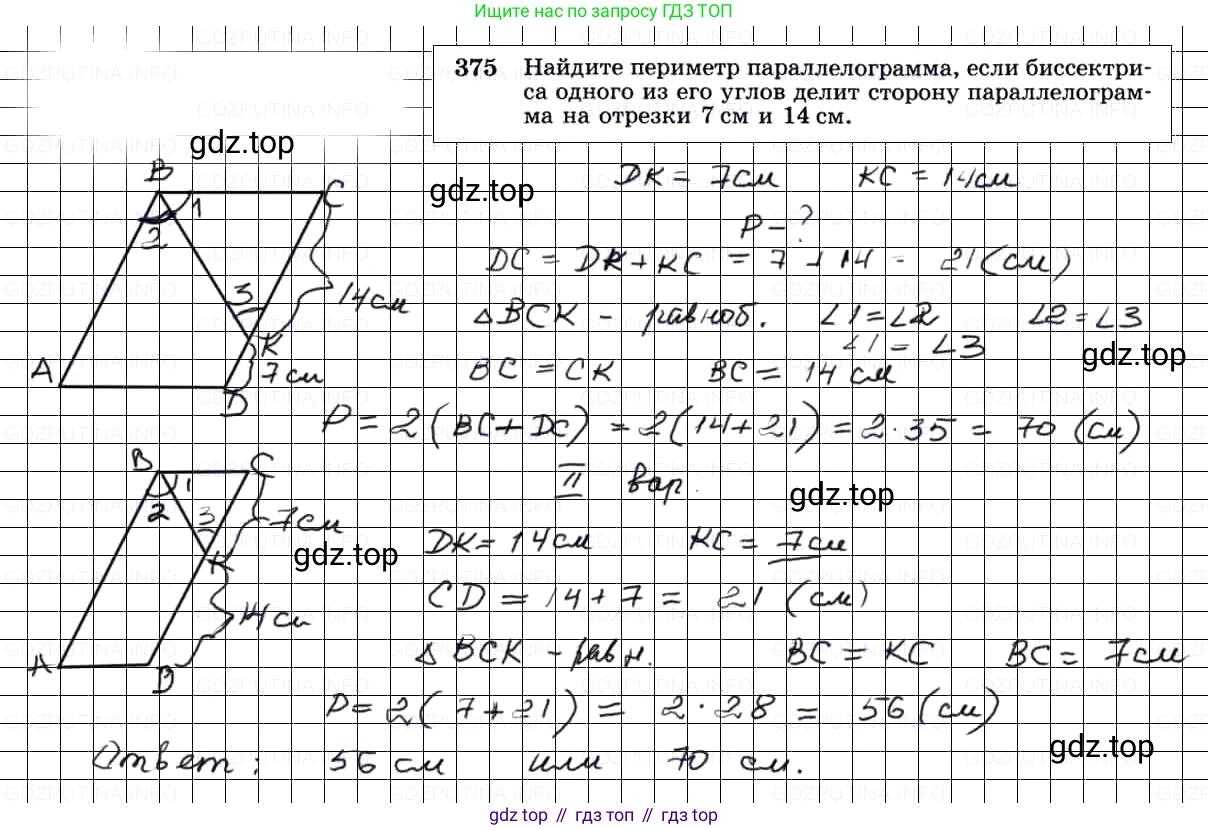 Ищите нас по запросу ГДЗ ТОП
375 Найдите периметр параллелограмма, если биссектри-
са одного из его углов делит сторону параллелограм-
ма на отрезки 7 см и 14 см.
gdz.top
B
C
1
2
3
14 см
K
7 см
A
D
gdz.top
DK = 7см KC = 14см
P - ?
DC = DK + KC = 7 + 14 = 21 (см)
△BCK - равноб. ∠1=∠2 ∠2=∠3
∠1 = ∠3
gdz.top
BC = CK BC = 14 см
P = 2(BC+DC) = 2(14+21) = 2·35 = 70 (см)
B
C
1
2
3
7см
K
14 см
A
D
gdz.top
II вар.
gdz.top
DK = 14см KC = 7см
CD = 14 + 7 = 21 (см)
△BCK - равн. BC = KC BC = 7см
P = 2(7+21) = 2·28 = 56 (см)
gdz.top
Ответ: 56 см или 70 см.
gdz top // гдз топ // gdz top
GDZPUTINA.INFO